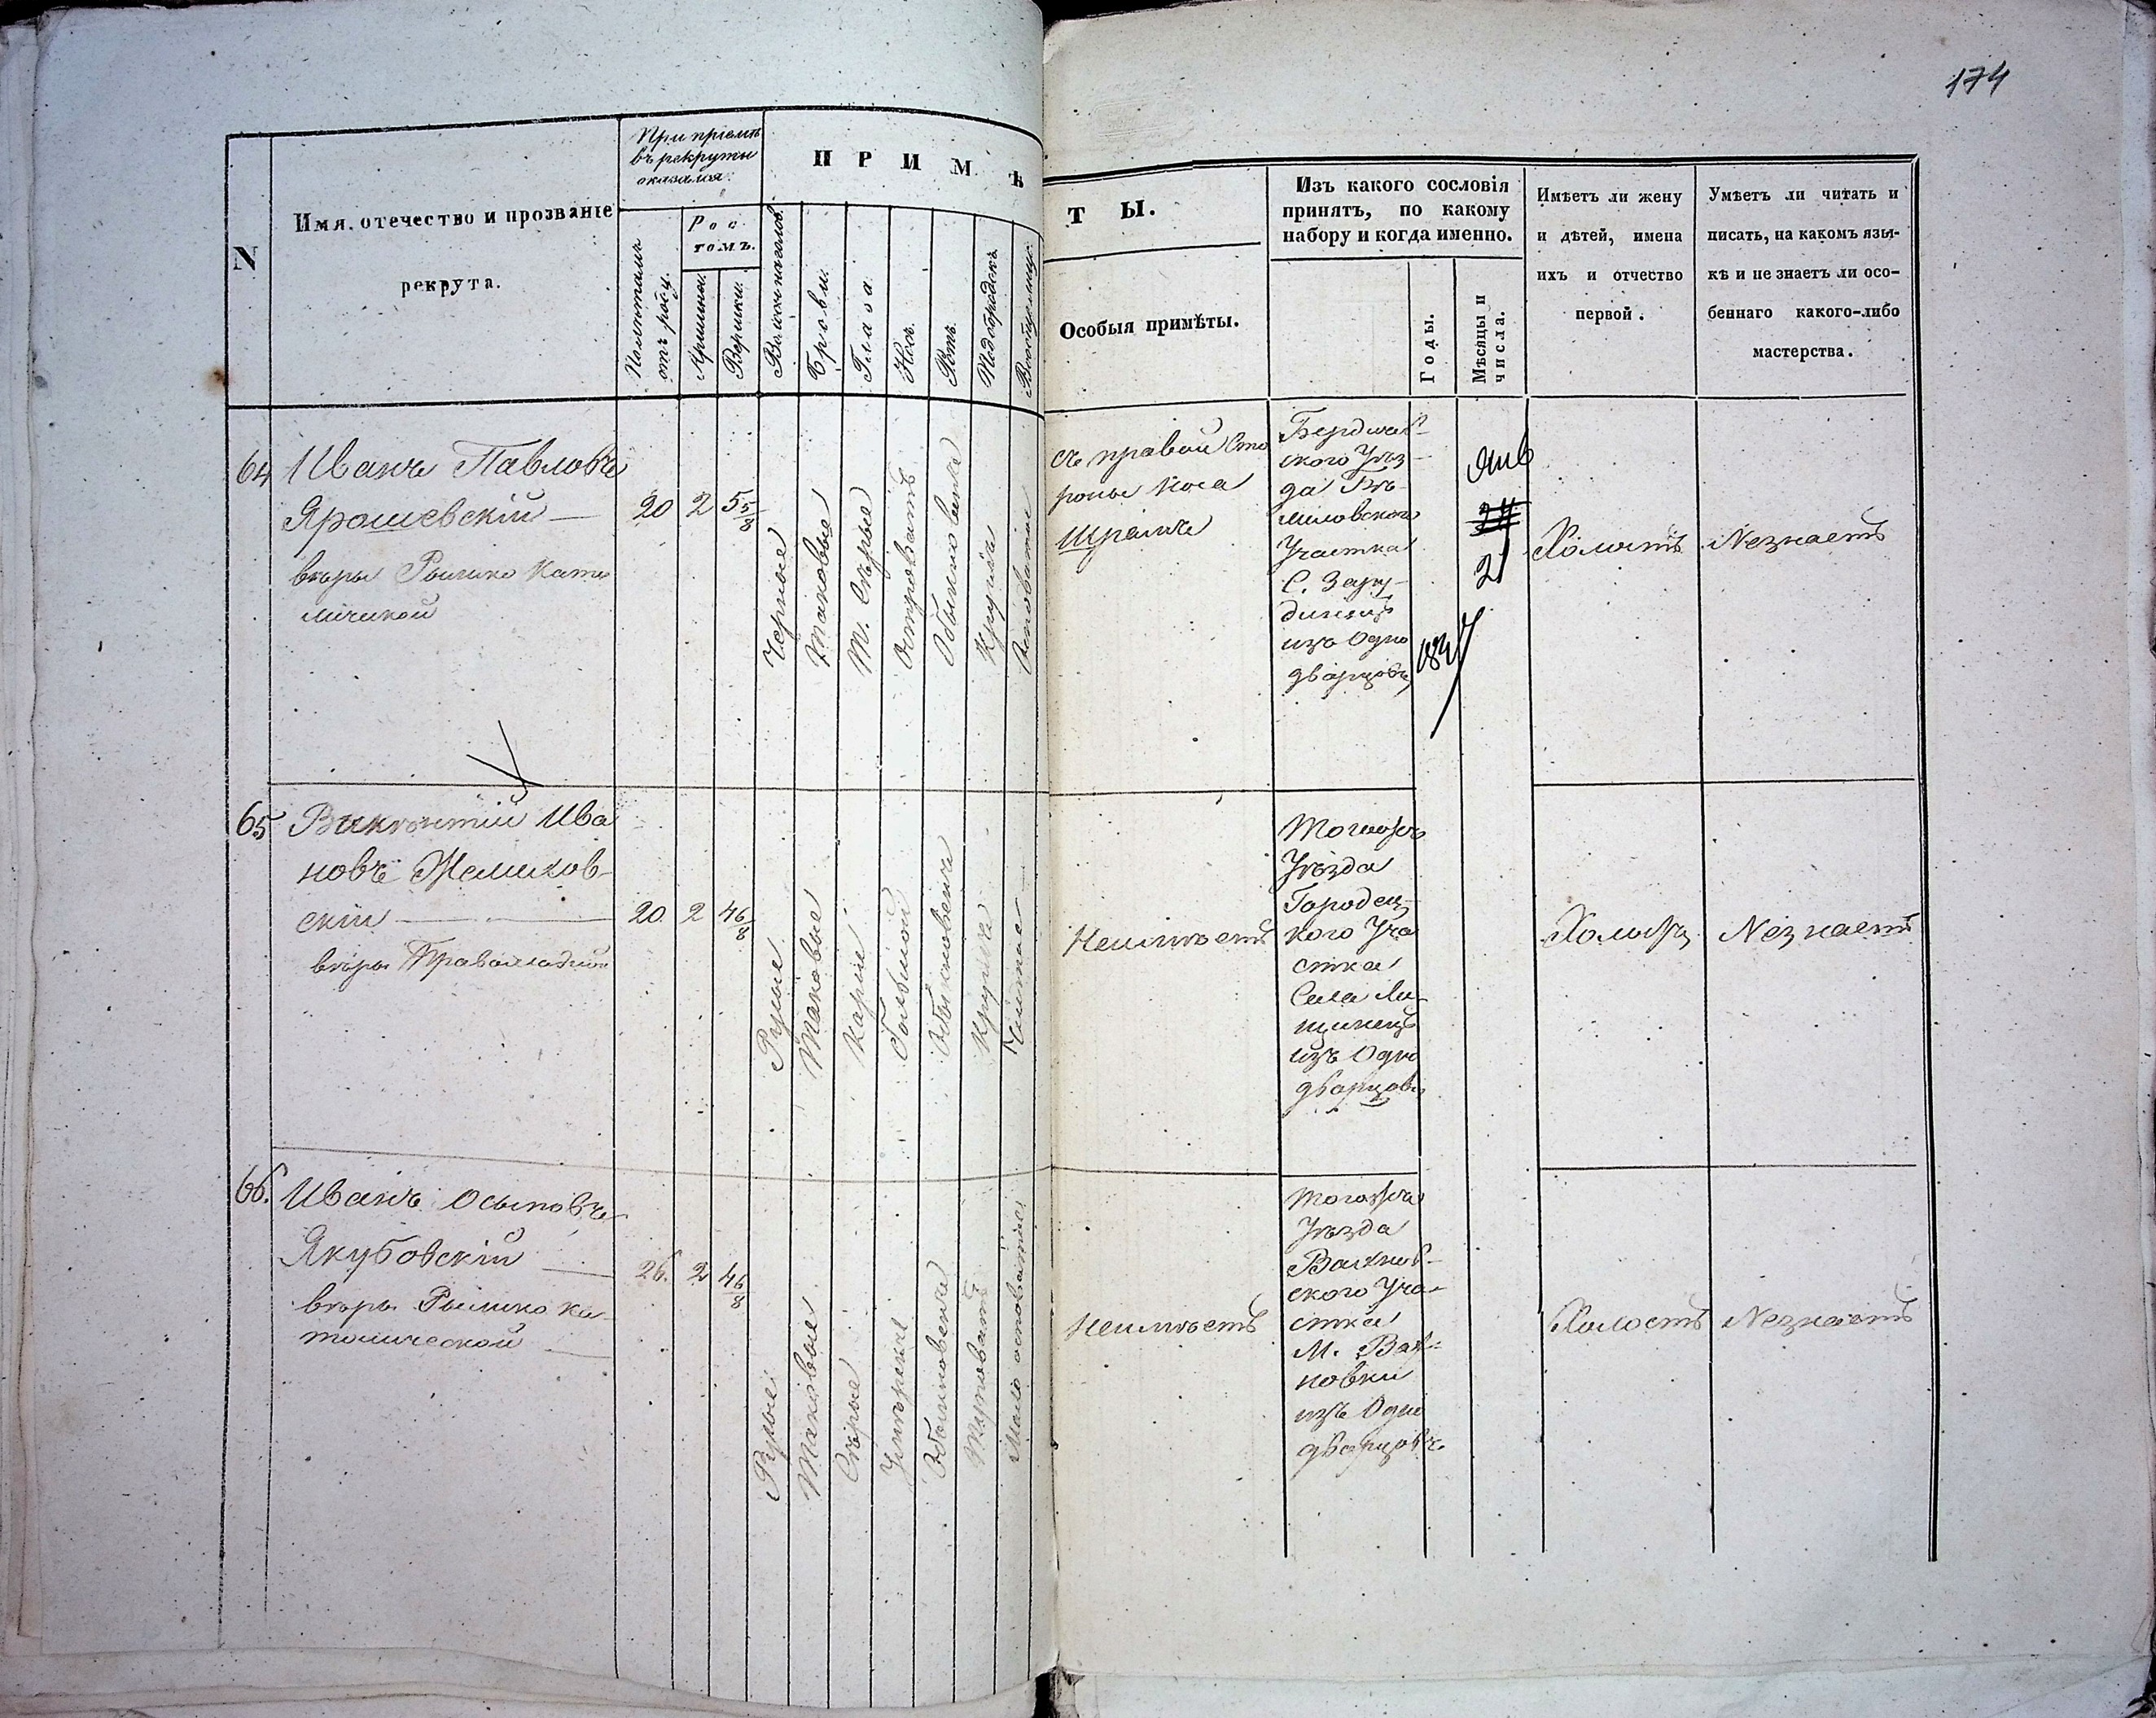 174
N
Имя, отечество и прозваніе
рекрута.
При приемѣ
въ рекруты
оказался:
Полѣтамъ
отъ роду.
Рос
томъ.
Аршины.
Вершки.
ПРИМѢ
Волосы на головѣ.
Брови.
Глаза.
Носъ.
Ротъ.
Подбородокъ
Вообще лице
ТЫ.
Особыя примѣты.
Изъ какого сословія
принятъ, по какому
набору и когда именно.
Годы.
Мѣсяцы и
числа.
Имѣетъ ли жену
и дѣтей, имена
ихъ и отчество
первой.
Умѣетъ ли читать и
писать, на какомъ язы-
кѣ и не знаетъ ли осо-
беннаго какого-либо
мастерства.
64
Иванъ Павловъ
Ярошевскій
вѣры Римско Като
личиской
20
2
5 5/8
Черные
Таковые
Т. Сѣрые
Островатъ
Обыкновенъ
Круглъ
съ правой Сто
роны Носа
Шрамъ
Бердичев
ского Уѣз
да
миловского
Участка
С. Зару-
динецъ
изъ Одно
дворцовъ
Янв
21
Холостъ
Незнаетъ
65
Викентій Ива
новъ Желихов-
скій
вѣры Православной
20
2
4 6/8
Русые
Таковые
Каріе
большой
Обыкновенъ
Круглъ
Чистое
Неимѣетъ
Уѣзда
Городец-
кого Уча
стка
Села Ли-
щинецъ
изъ Одно
дворцовъ
Холостъ
Незнаетъ
66.
Иванъ Осыповъ
Якубовскій
вѣры Римско Ка-
толической
26.
2
4 6/8
Русые
Таковые
Сѣрые
Умѣренъ
Обыкновенъ
Мало осповатое
Неимѣетъ
Тогожъ
Уѣзда
Вахнов-
ского Уча-
стка
М. Вах-
новки
изъ Одно
дворцовъ
Холостъ
Незнаетъ